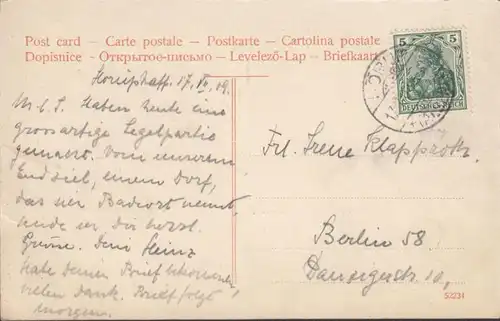 Post card – Carte postale – Postkarte – Cartolina postale
Dopisnice – Открытое-письмо – Levelező-Lap – Briefkaart
5 5
DEUTSCHES REICH
17.
M. l. S. Haben heute eine
grossartige Segelpartie
gemacht. Von unserem
Endziel, einem Dorf,
das sich Badeort nennt,
sende ich Dir herzl.
Grüsse. Dein Heinz
Habe deinen Brief bekommen
vielen Dank. Brief folgt
morgen.
Frl. Irene Klapproth.
Berlin 58
Danzigerstr. 10,
52231